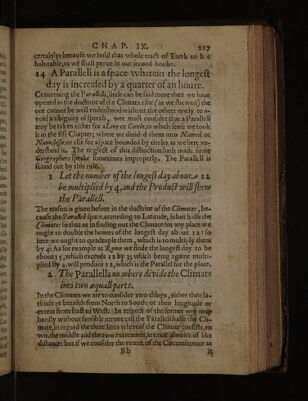 CHAP. IX. 217
certainly: because we hold that whole tract of Earth to be
habitable, as we shall perve in our second booke.
14 A Parallell is a space wherein the longest
day is increased by a quarter of an houre.
Concerning the Parallels, little can be said more then we haue
opened in the doctrine of the Climats: for (as we shewed) the
one cannot be well vnderstood without the other: onely to a-
void ambiguity of speech, wee must consider that a Parallell
may be taken either for a Line or Circle: in which sense we took
it in the first Chapter; where we divided them into Named or
Namelesse: or else for a space bounded by circles as in here vn-
derstand it. The neglect of this distinction hath made some
Geographers speake sometimes improperly. The Parallell is
found out by this rule.
1 Let the number of the longest day aboue 12
be multiplied by 4, and the Product will shew
the Parallell.
The reason is given before in the doctrine of the Climates, be-
cause the Parallell space according to Latitude, is but halfe the
Climate: so that as in finding out the Climate for any place we
ought to double the houres of the longest day aboue 12: so
here we ought to quadruple them, which is to multiply them
by 4: As for example at Rome we finde the longest day to be
about 15, which exceeds 12 by 3; which being againe multi-
plied by 4, will produce 12, which is the Parallel for the place.
2 The Parallells no where divide the Climats
into two æquall parts.
In the Climats we are to consider two things, either the la-
titude or breadth from North to South; or their longitude or
extent from East to West. In respect of the former wee may
hardly without sensible errour call the Parallell halfe the Cli-
mate, in regard the three lines whereof the Climate consists, to
wit, the middle and the two extreames, are not alwaies of like
distance: but if we consider the extent of the Circumference as
Bb